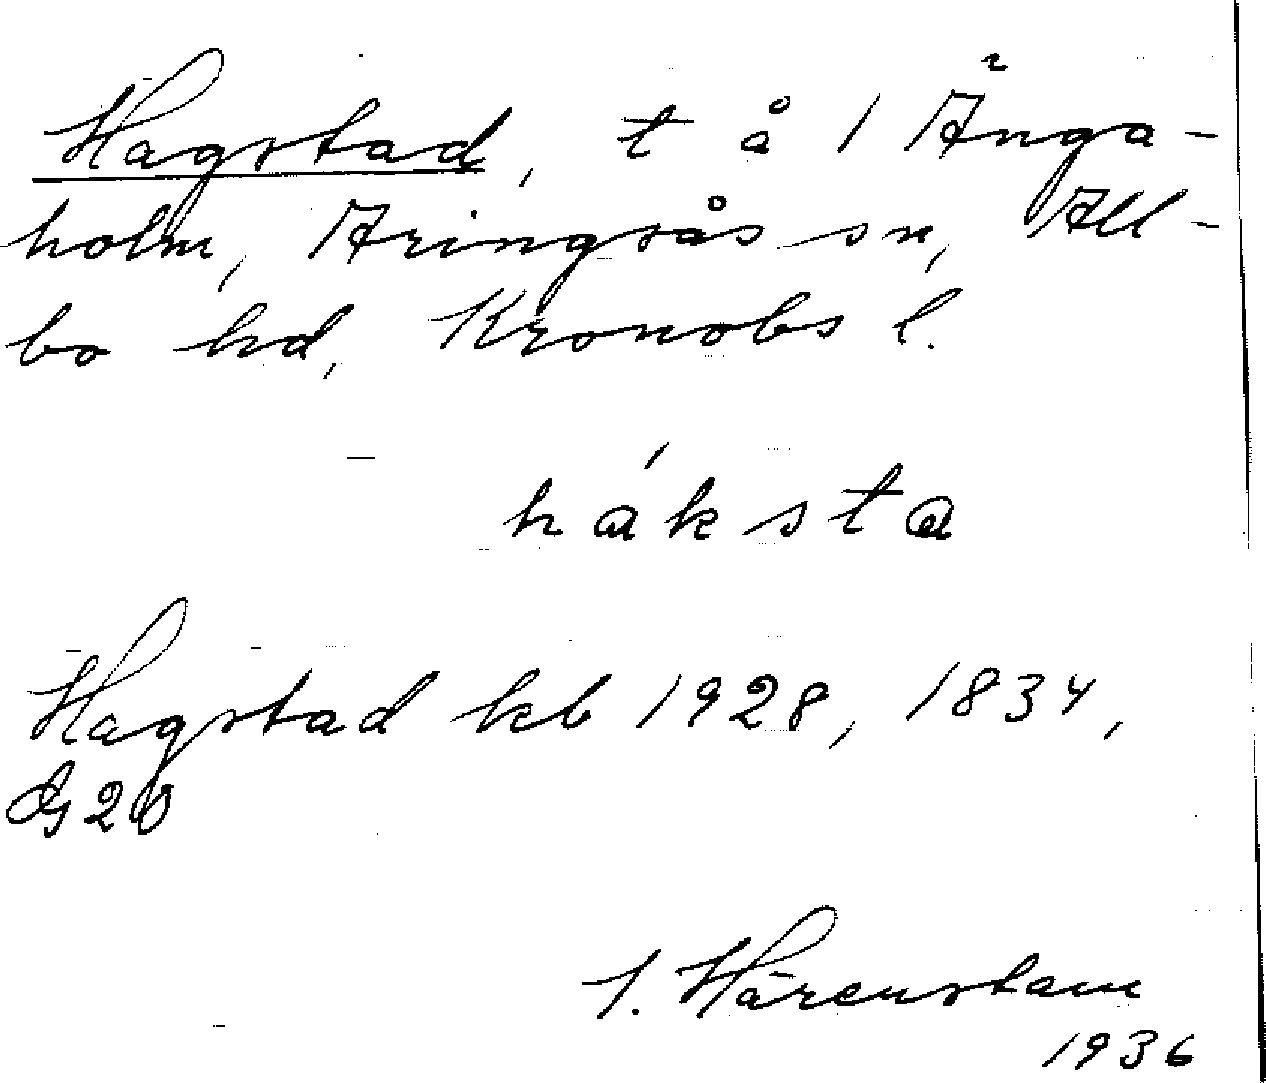 Hagstad, t å 1 Änga-
holm, Aringsås sn, All-
bo hd, Kronobs l.
háksta
Hagstad kb 1928, 1834,
G 20
I. Härenstam
1936